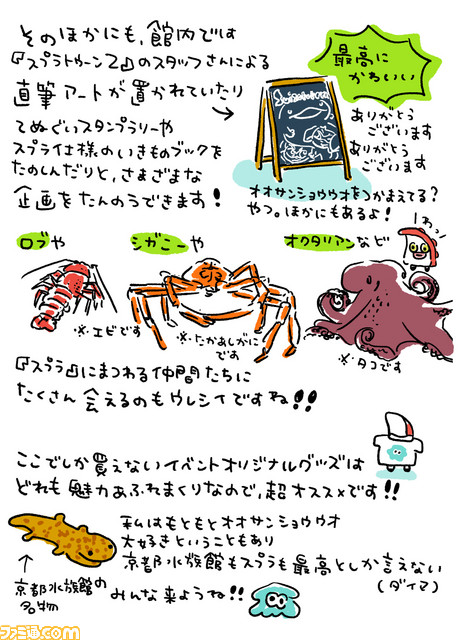 そのほかにも、館内では
『スプラトゥーン2』のスタッフさんによる
直筆アートが置かれていたり
てぬぐいスタンプラリーや
スプライェ様のいきものブックを
たのしんだりと、さまざまな
企画をたんのうできます!
最高に
かわいい
ありがとう
ございます
ありがとう
ございます
オオサンショウウオをつかまえてる?
やつ。ほかにもあるよ!
ロブや
シガニーや
オクタリアンなど
※エビです
※たかあしがに
です
※タコです
『スプラ』にまつわる仲間たちに
たくさん会えるのもウレシイですね!!
ここでしか買えないイベントオリジナルグッズは
どれも魅力あふれまくりなので、超オススメです!!
私はもともとオオサンショウウオ
大好きということもあり
京都水族館もスプラも最高としか言えない
(ダイマ)
みんな来ようね!!
京都水族館の
名物
ファミ通.com